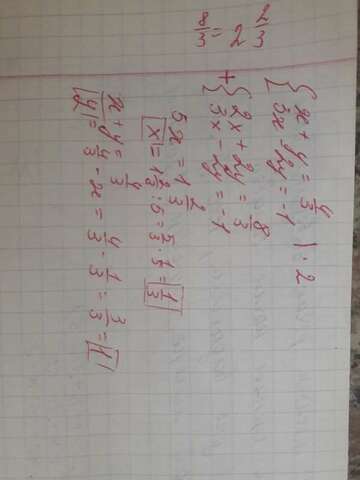 8/3 = 2 2/3
{ x + y = 4/3 | · 2
3x - 2y = -1
+ { 2x + 2y = 8/3
3x - 2y = -1
5x = 1 2/3
x = 1 2/3 : 5 = 5/3 · 1/5 = 1/3
x + y = 4/3
y = 4/3 - x = 4/3 - 1/3 = 3/3 = 1